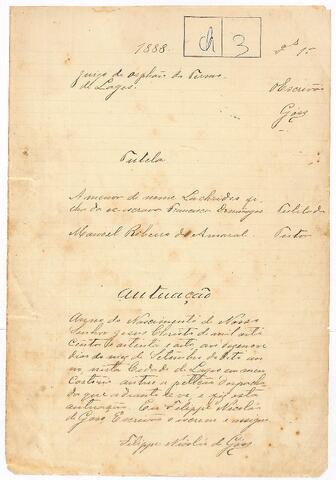 1888.
ch 3
Nº 1
Juizo de Orphãos do Termo
de Lages.
O Escrivão
Góss
Tutela
A menor de nome Luchrides fi-
lha da ex-escrava Francisca Domingas Tutelada
Manoel Ribeiro do Amaral. Tutor
Autuação
Anno do Nascimento de Nosso
Senhor Jesus Christo de mil oito
centos e oitenta e oito, aos dezenove
dias do mez de Setembro do dito an-
no nesta Cidade de Lages em meu
Cartorio autuei a petição despacha-
da que adiante se vê, e fiz esta
autuação. Eu Felippe Nicoláo
de Góss Escrivão o escrevi e assigno
Felippe Nicoláo de Góss